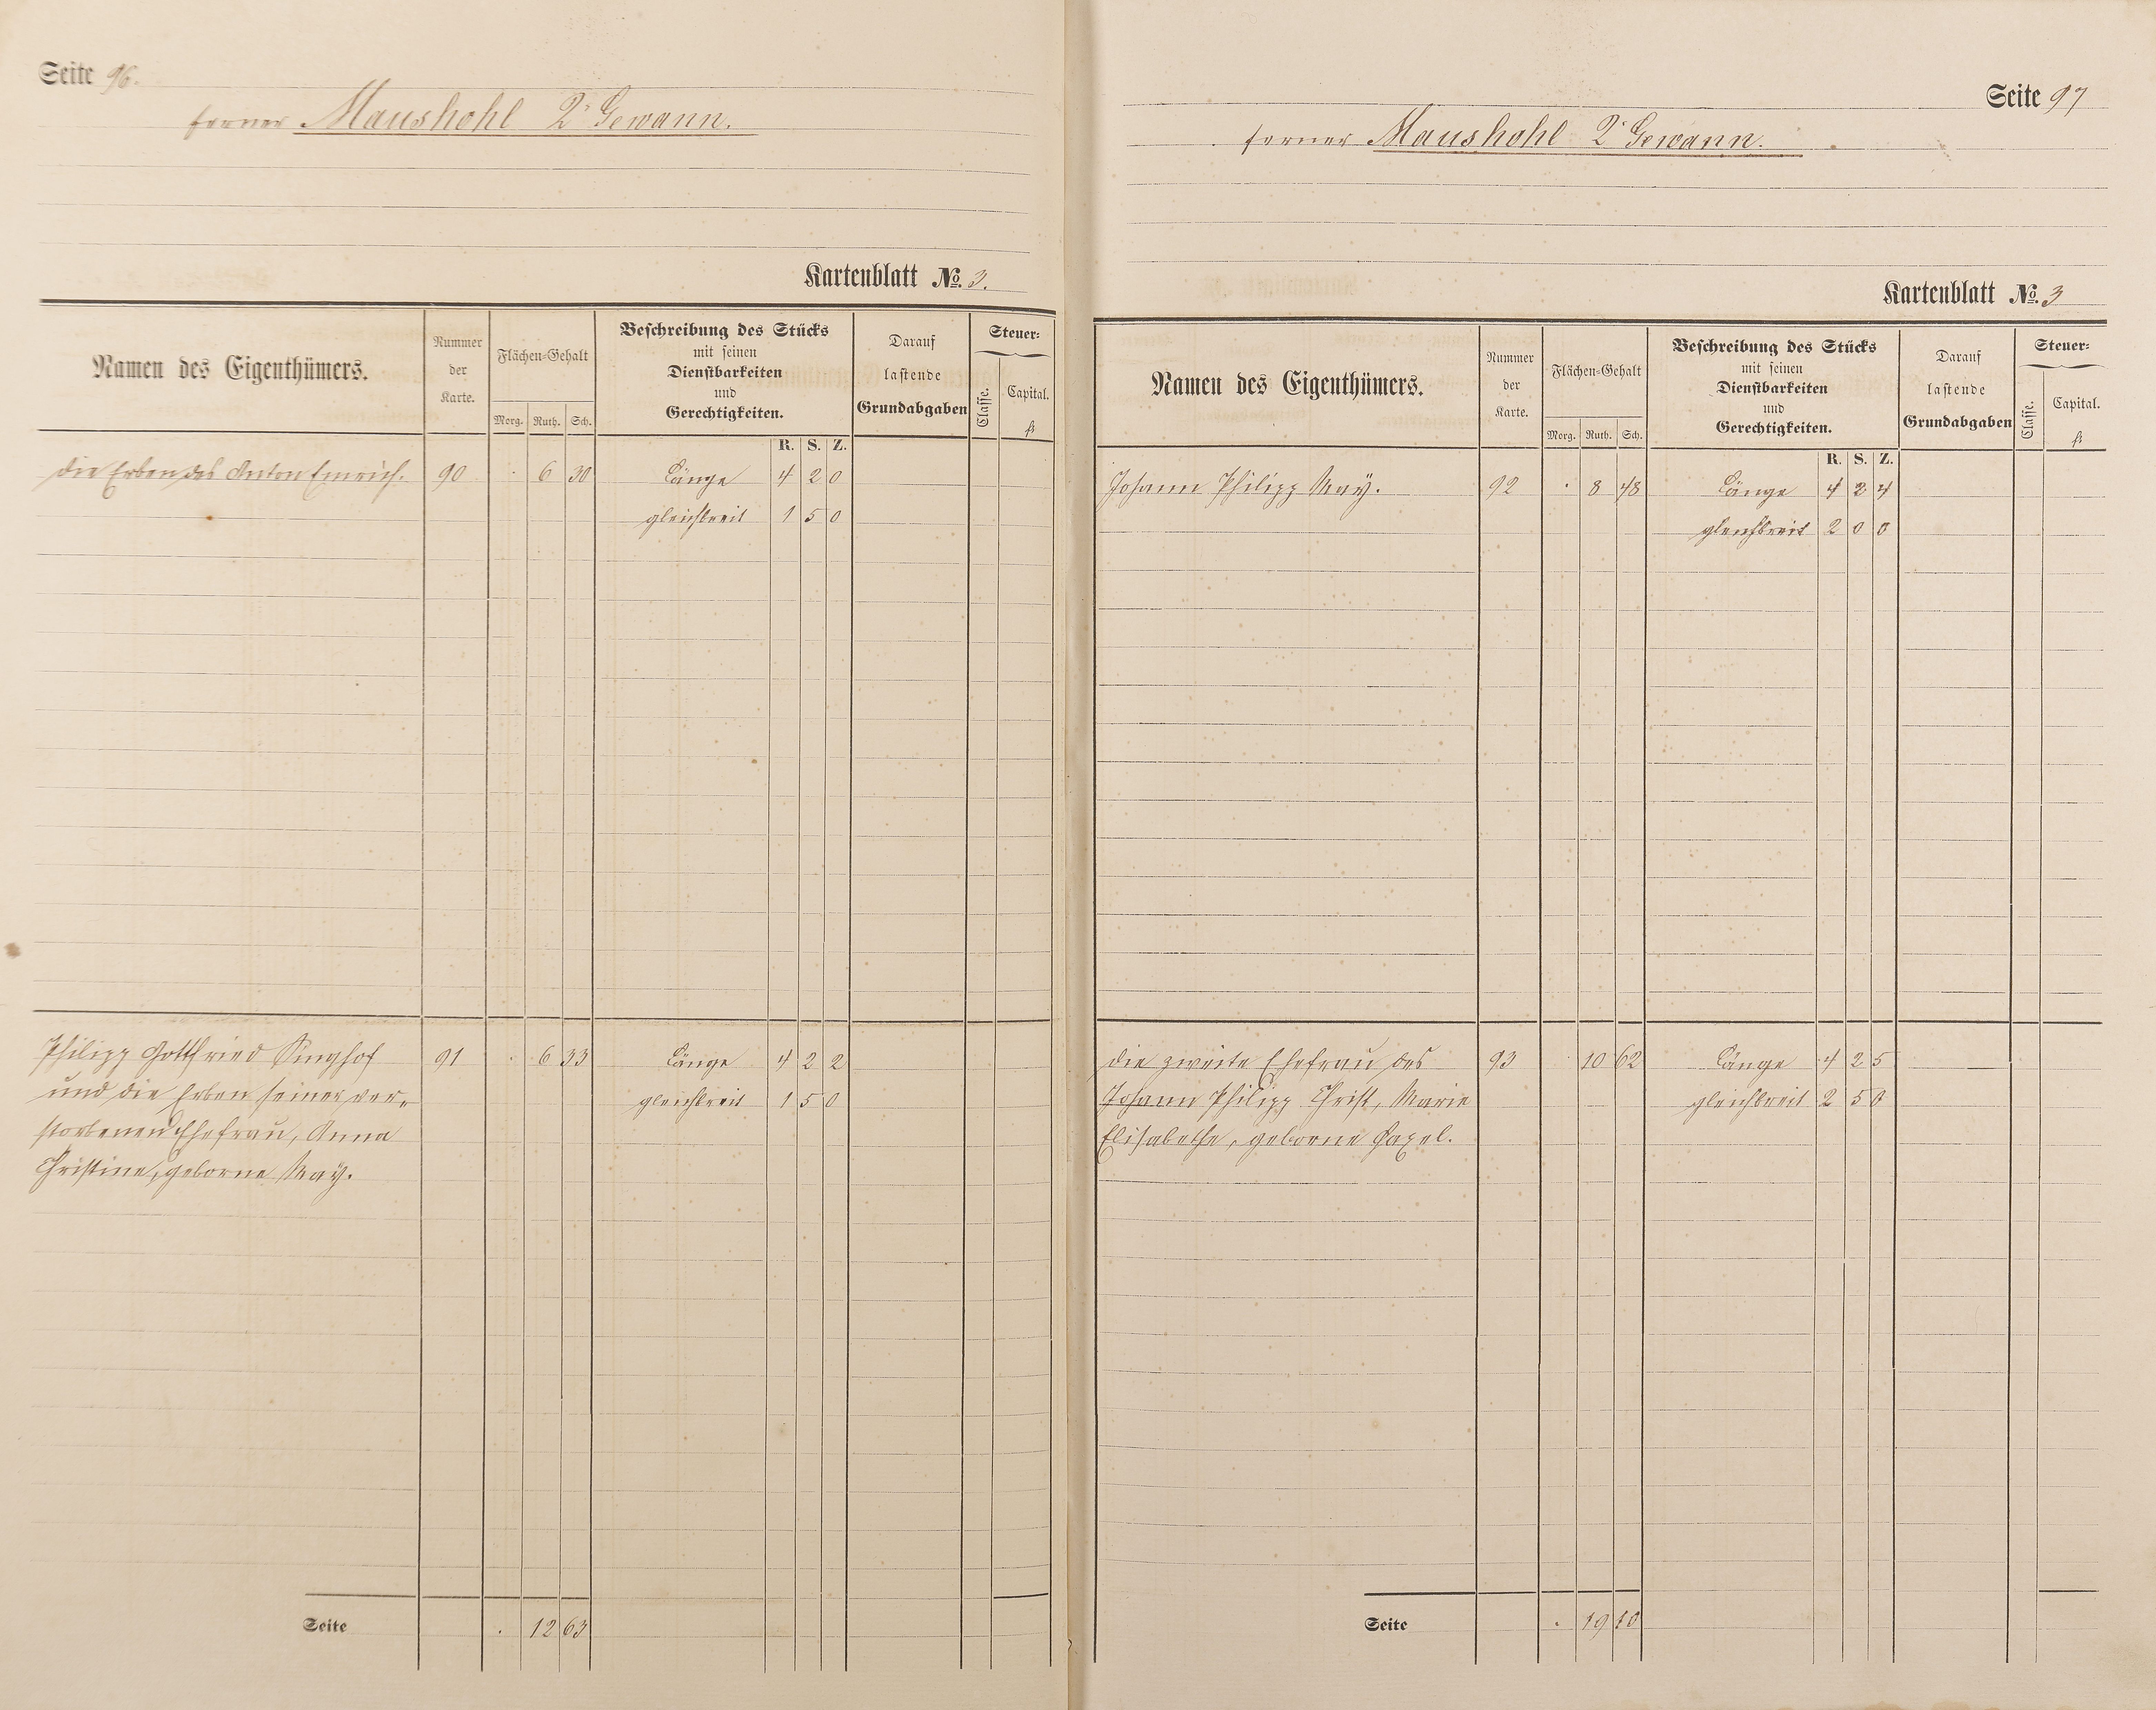 Seite 96.
ferner Maushohl 2r Gewann.
Kartenblatt No. 3.
Namen des Eigenthümers.
Nummer der Karte.
Flächen-Gehalt
Morg. Ruth. Sch.
Beschreibung des Stücks
mit seinen
Dienstbarkeiten
und
Gerechtigkeiten.
Darauf
lastende
Grundabgaben
Steuer-
Classe. Capital.
fl
R. S. Z.
die Erben des Anton Emrich. 90 . 6 30 Länge 4 2 0
gleichbreit 1 5 0
Philipp Gottfried Singhof 91 . 6 33 Länge 4 2 2
und die Erben seiner ver- gleichbreit 1 5 0
storbenen Ehefrau, Anna
Christine, geborne May.
Seite . 12 63
Seite 97
ferner Maushohl 2r Gewann.
Kartenblatt No. 3
Namen des Eigenthümers.
Nummer der Karte.
Flächen-Gehalt
Morg. Ruth. Sch.
Beschreibung des Stücks
mit seinen
Dienstbarkeiten
und
Gerechtigkeiten.
Darauf
lastende
Grundabgaben
Steuer-
Classe. Capital.
fl
R. S. Z.
Johann Philipp May. 92 . 8 48 Länge 4 2 4
gleichbreit 2 0 0
die zweite Ehefrau des 93 . 10 62 Länge 4 2 5
Johann Philipp Christ, Marie gleichbreit 2 5 0
Elisabethe, geborne
Seite . 19 10